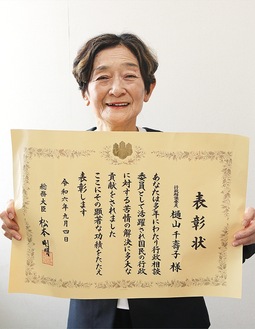 表彰状
行政相談委員
樋山千壽子 様
あなたは多年にわたり行政相談
委員として活躍され国民の行政
に対する苦情の解決に多大な
貢献をされました
ここにその顕著な功績をたたえ
表彰します
令和六年九月四日
総務大臣 松本剛明